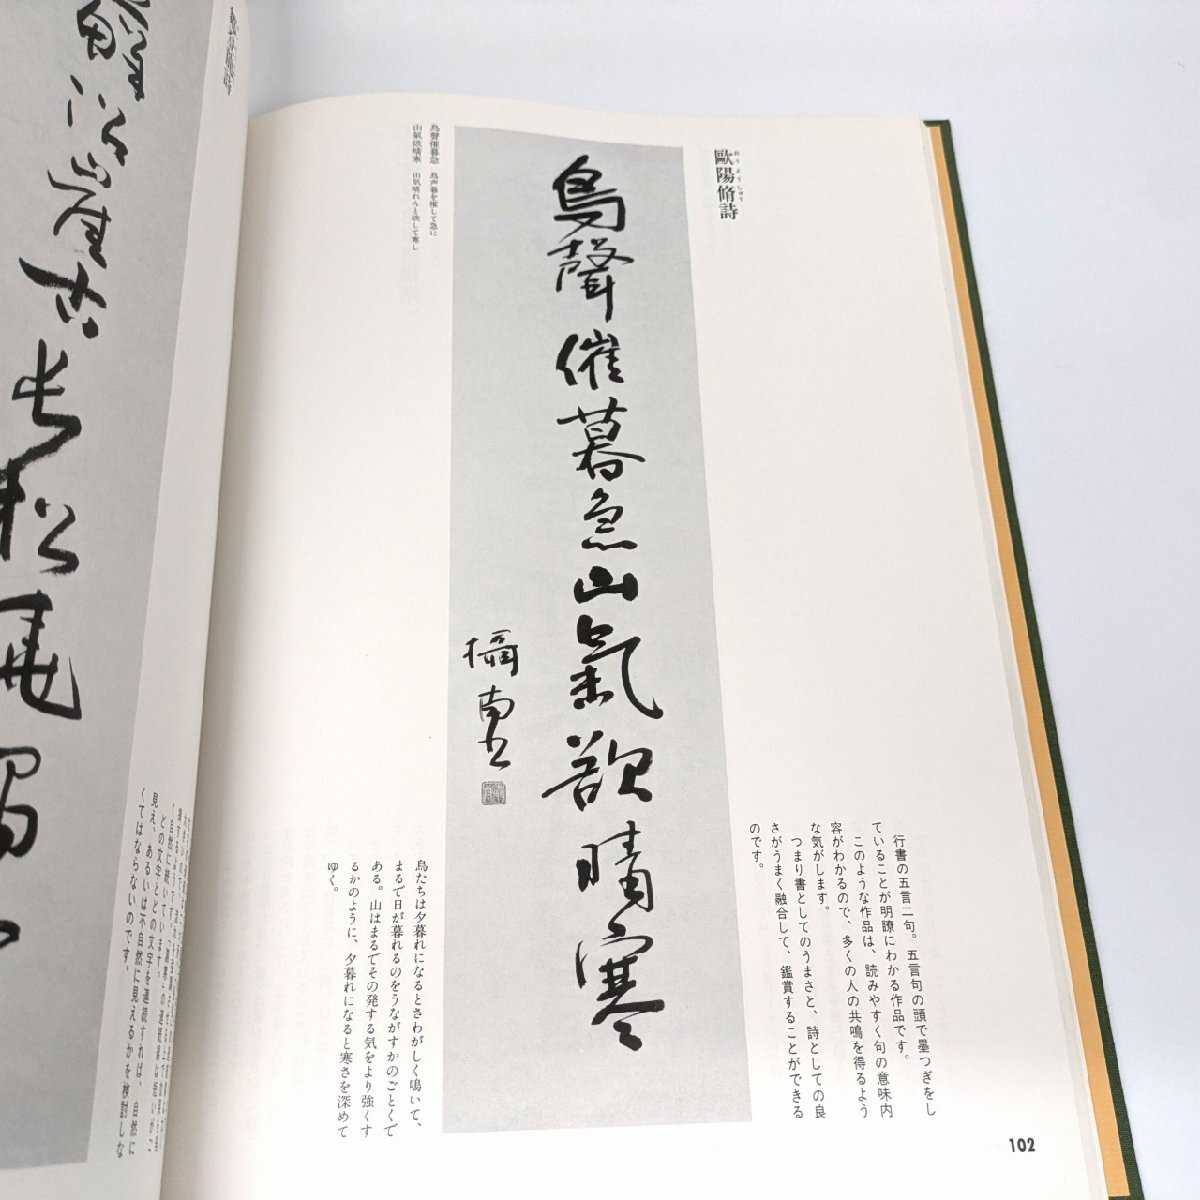 歐陽脩詩
おうようしゅう
鳥聲催暮急山氣欲晴寒
鳥聲催暮急　鳥声暮を催して急に
山氣欲晴寒　山気晴れんと欲して寒し
行書の五言二句。五言句の頭で墨つぎをし
ていることが明瞭にわかる作品です。
このような作品は、読みやすく句の意味内
容がわかるので、多くの人の共鳴を得るよう
な気がします。
つまり書としてのうまさと、詩としての良
さがうまく融合して、鑑賞することができる
のです。
鳥たちは夕暮れになるとさわがしく鳴いて、
まるで日が暮れるのをうながすかのごとくで
ある。山はまるでその発する気をより強くす
るかのように、夕暮れになると寒さを深めて
ゆく。
102
崖古長松
見え、あるいは不自然に見えるかを検討しな
くてはならないのです。